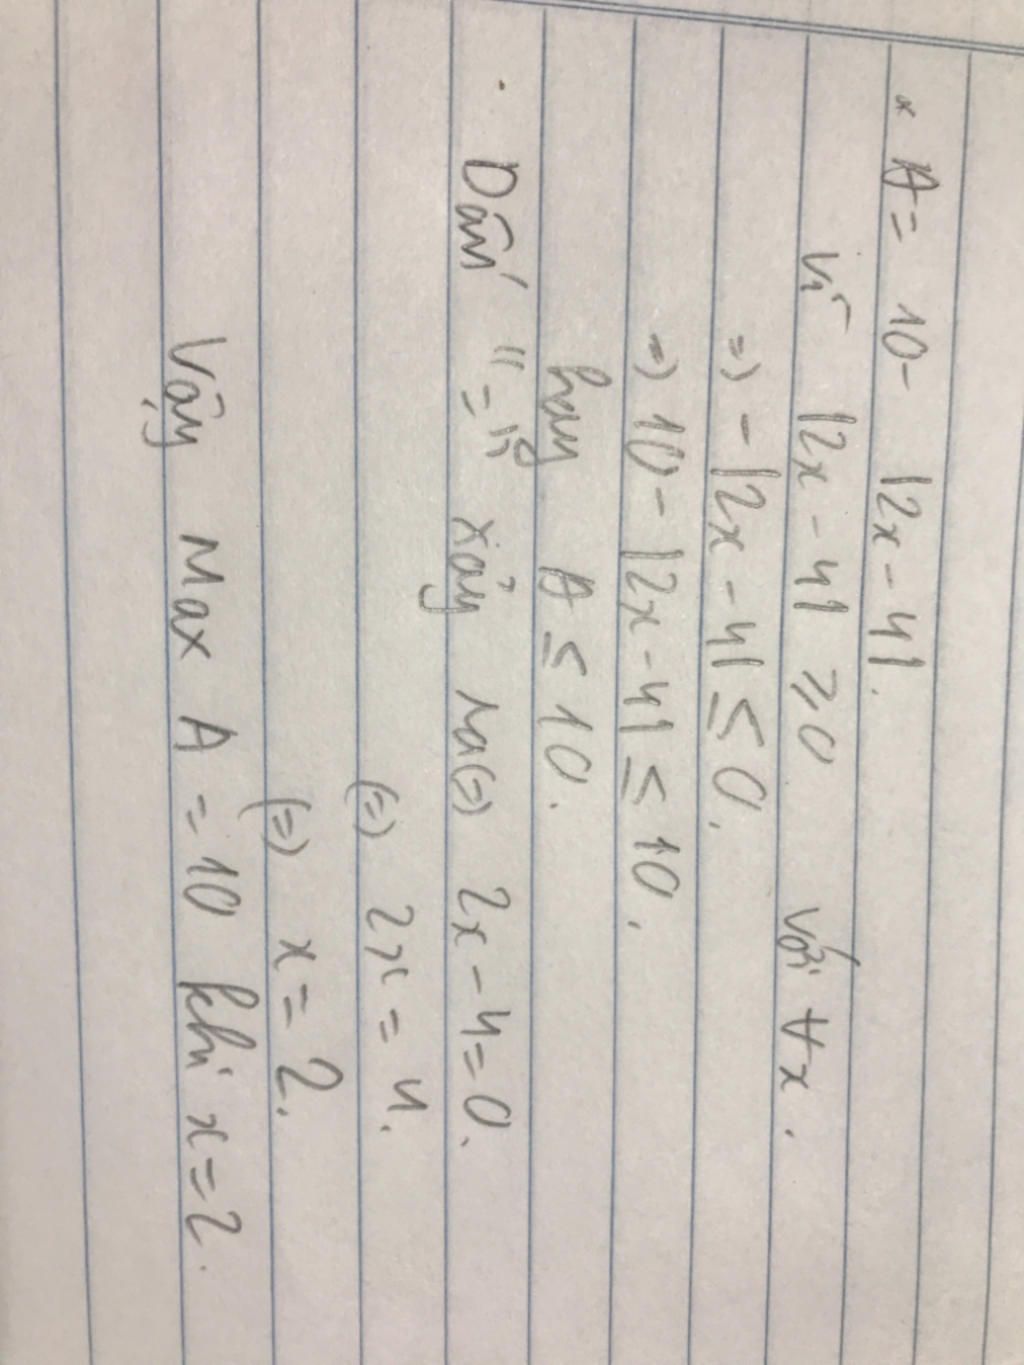 * A = 10 - |2x - 4|.
Vì |2x - 4| ≥ 0 với ∀x.
=) - |2x - 4| ≤ 0.
=) 10 - |2x - 4| ≤ 10.
hay A ≤ 10.
. Dấu "=" xảy ra (=) 2x - 4 = 0.
(=) 2x = 4.
(=) x = 2.
Vậy Max A = 10 khi x = 2.